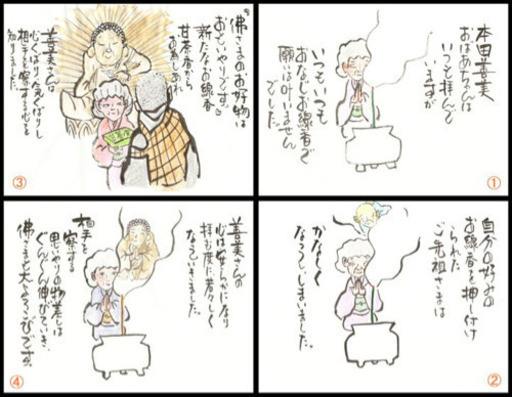 本田善美
おばあちゃんは
いつも拝んで
いますが
いつもいつも
おなじお線香で
願いは叶いません
でした。
①
自分の好みの
お線香を押し付け
られた
ご先祖さまは
かなしく
なってしまいました。
②
佛さまのお好物は
おもいやりです。
新たなお線香
甘茶香から
お為しあれ
善美さんは
心くばり気くばりし
相手を察する心を
知りました。
③
善美さんの
心は安らかになり
拝む度に若々しく
なっていきました。
相手を
察する
思いやりの物差しは
ぐんぐん伸びていき、
佛さまも大よろこびです。
④